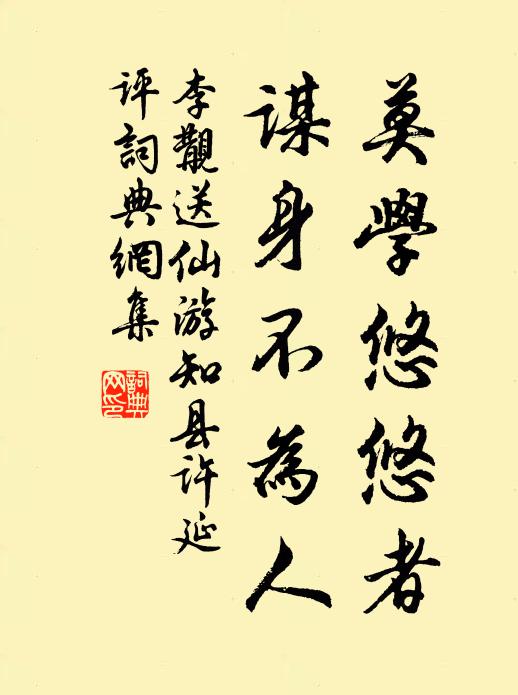 莫學悠悠者
謀身不為人
李覯送仙游知县许延
评詞典網集
詞典网印